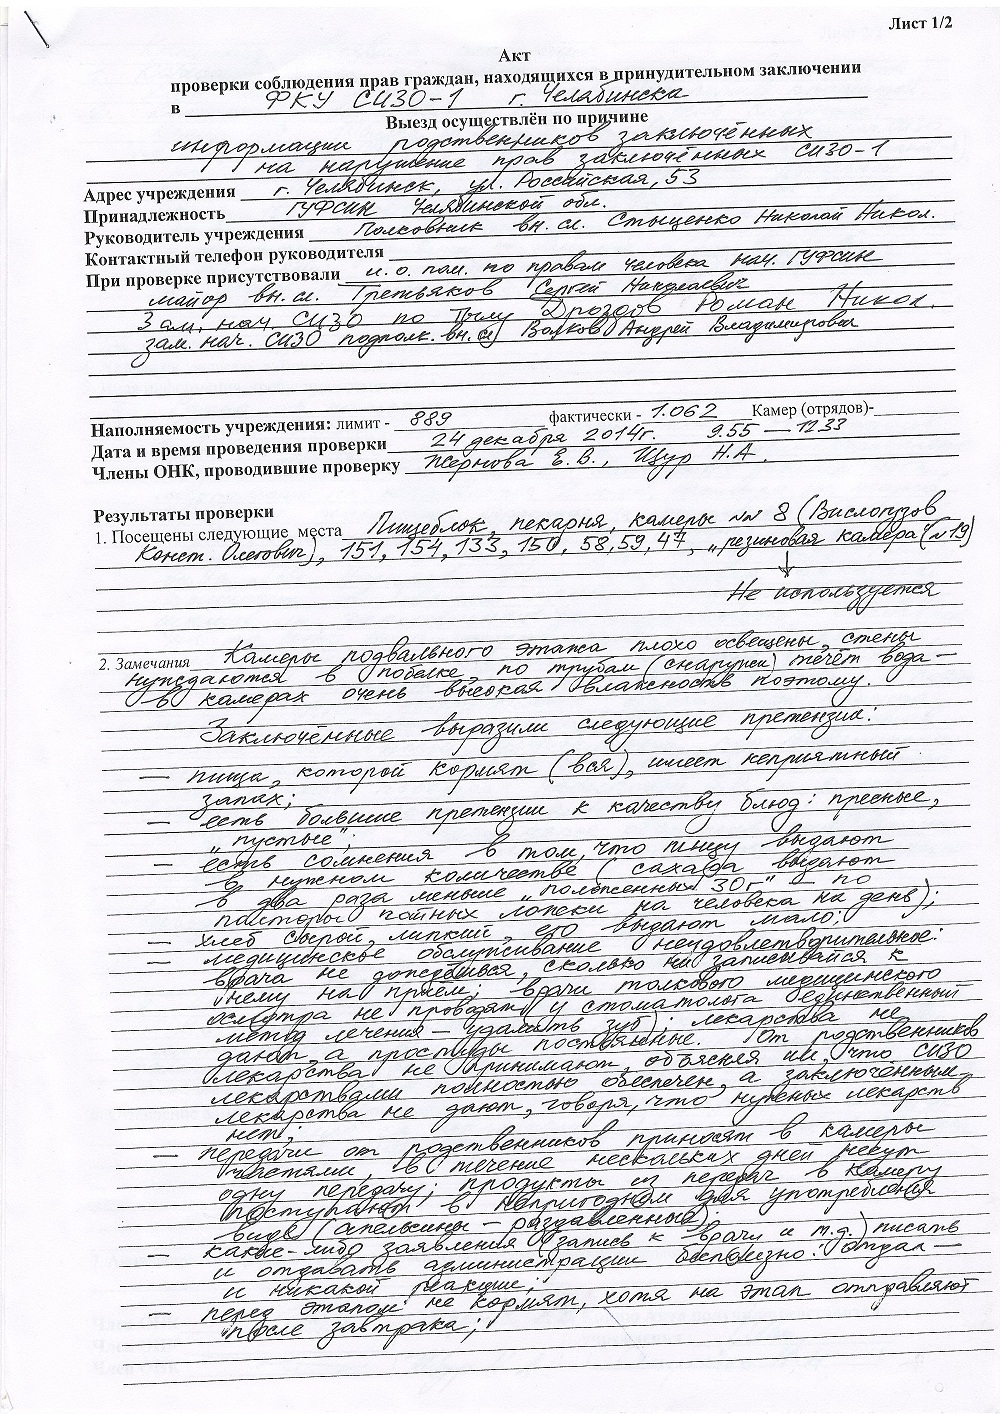 Лист 1/2
Акт
проверки соблюдения прав граждан, находящихся в принудительном заключении
в ФКУ СИЗО-1 г. Челябинска
Выезд осуществлён по причине
информации родственников заключённых
на нарушение прав заключённых СИЗО-1
Адрес учреждения г. Челябинск, ул. Российская, 53
Принадлежность ГУФСИН Челябинской обл.
Руководитель учреждения Полковник вн. сл. Стыценко Николай Никол.
Контактный телефон руководителя
При проверке присутствовали и.о. пом. по правам человека нач. ГУФСИН
майор вн. сл. Третьяков Сергей Николаевич
Зам. нач. СИЗО по тылу Дроздов Роман Никол.
зам. нач. СИЗО подполк. вн. сл Волков Андрей Владимирович
Наполняемость учреждения: лимит - 889 фактически - 1.062 Камер (отрядов)-
Дата и время проведения проверки 24 декабря 2014г. 9.55 — 1233
Члены ОНК, проводившие проверку Жернова Е.В., Щур Н.А.
Результаты проверки
1. Посещены следующие места Пищеблок, пекарня, камеры №№ 8 (Вислогузов
Конст. Олегович), 151, 154, 133, 150, 58, 59, 47, „резиновая камера" (№19)
Не используется
2. Замечания Камеры подвального этажа плохо освещены, стены
нуждаются в побелке, по трубам (снаружи) течёт вода —
в камерах очень высокая влажность поэтому.
Заключённые выразили следующие претензии:
— пища, которой кормят (вся), имеет неприятный
запах;
— есть большие претензии к качеству блюд: пресные,
„пустые";
— есть сомнения в том, что пищу выдают
в нужном количестве (сахара выдают
в два раза меньше „положенных 30г" – по
полторы полных ложки на человека на день);
— хлеб сырой, липкий, его выдают мало;
— медицинское обслуживание неудовлетворительное:
врача не дождёшься, сколько ни записывайся к
нему на приём; врачи толкового медицинского
осмотра не проводят (у стоматолога единственный
метод лечения – удалить зуб); лекарства не
дают, а простуды постоянные. От родственников
лекарства не принимают, объясняя им, что СИЗО
лекарствами полностью обеспечен, а заключённым
лекарства не дают, говоря, что нужных лекарств
нет;
— передачи от родственников приносят в камеры
частями, в течение нескольких дней несут
одну передачу; продукты из передач в камеру
поступают в непригодном для употребления
виде (апельсины – раздавленные);
— какие-либо заявления (запись к врачу и т.д.) писать
и отдавать администрации бесполезно: отдал —
и никакой реакции;
— перед этапом не кормят, хотя на этап отправляют
после завтрака;